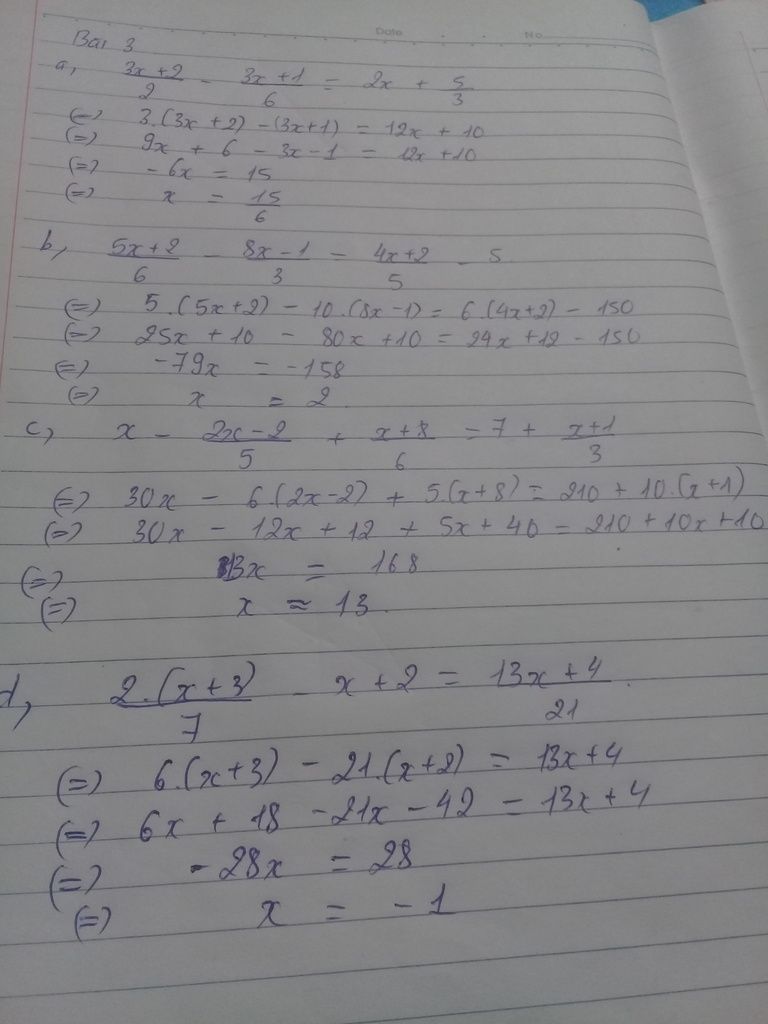 Date No
Bài 3
a, (3x+2)/2 - (3x+1)/6 = 2x + 5/3
(=) 3.(3x+2) - (3x+1) = 12x + 10
(=) 9x + 6 - 3x - 1 = 12x + 10
(=) -6x = 15
(=) x = 15/6
b, (5x+2)/6 - (8x-1)/3 = (4x+2)/5 - 5
(=) 5.(5x+2) - 10.(8x-1) = 6.(4x+2) - 150
(=) 25x + 10 - 80x + 10 = 24x + 12 - 150
(=) -79x = -158
(=) x = 2
c, x - (2x-2)/5 + (x+8)/6 = 7 + (x+1)/3
(=) 30x - 6.(2x-2) + 5.(x+8) = 210 + 10.(x+1)
(=) 30x - 12x + 12 + 5x + 40 = 210 + 10x + 10
(=) 13x = 168
(=) x ≈ 13
d, 2.(x+3)/7 - x + 2 = (13x+4)/21
(=) 6.(x+3) - 21.(x+2) = 13x+4
(=) 6x + 18 - 21x - 42 = 13x + 4
(=) -28x = 28
(=) x = -1